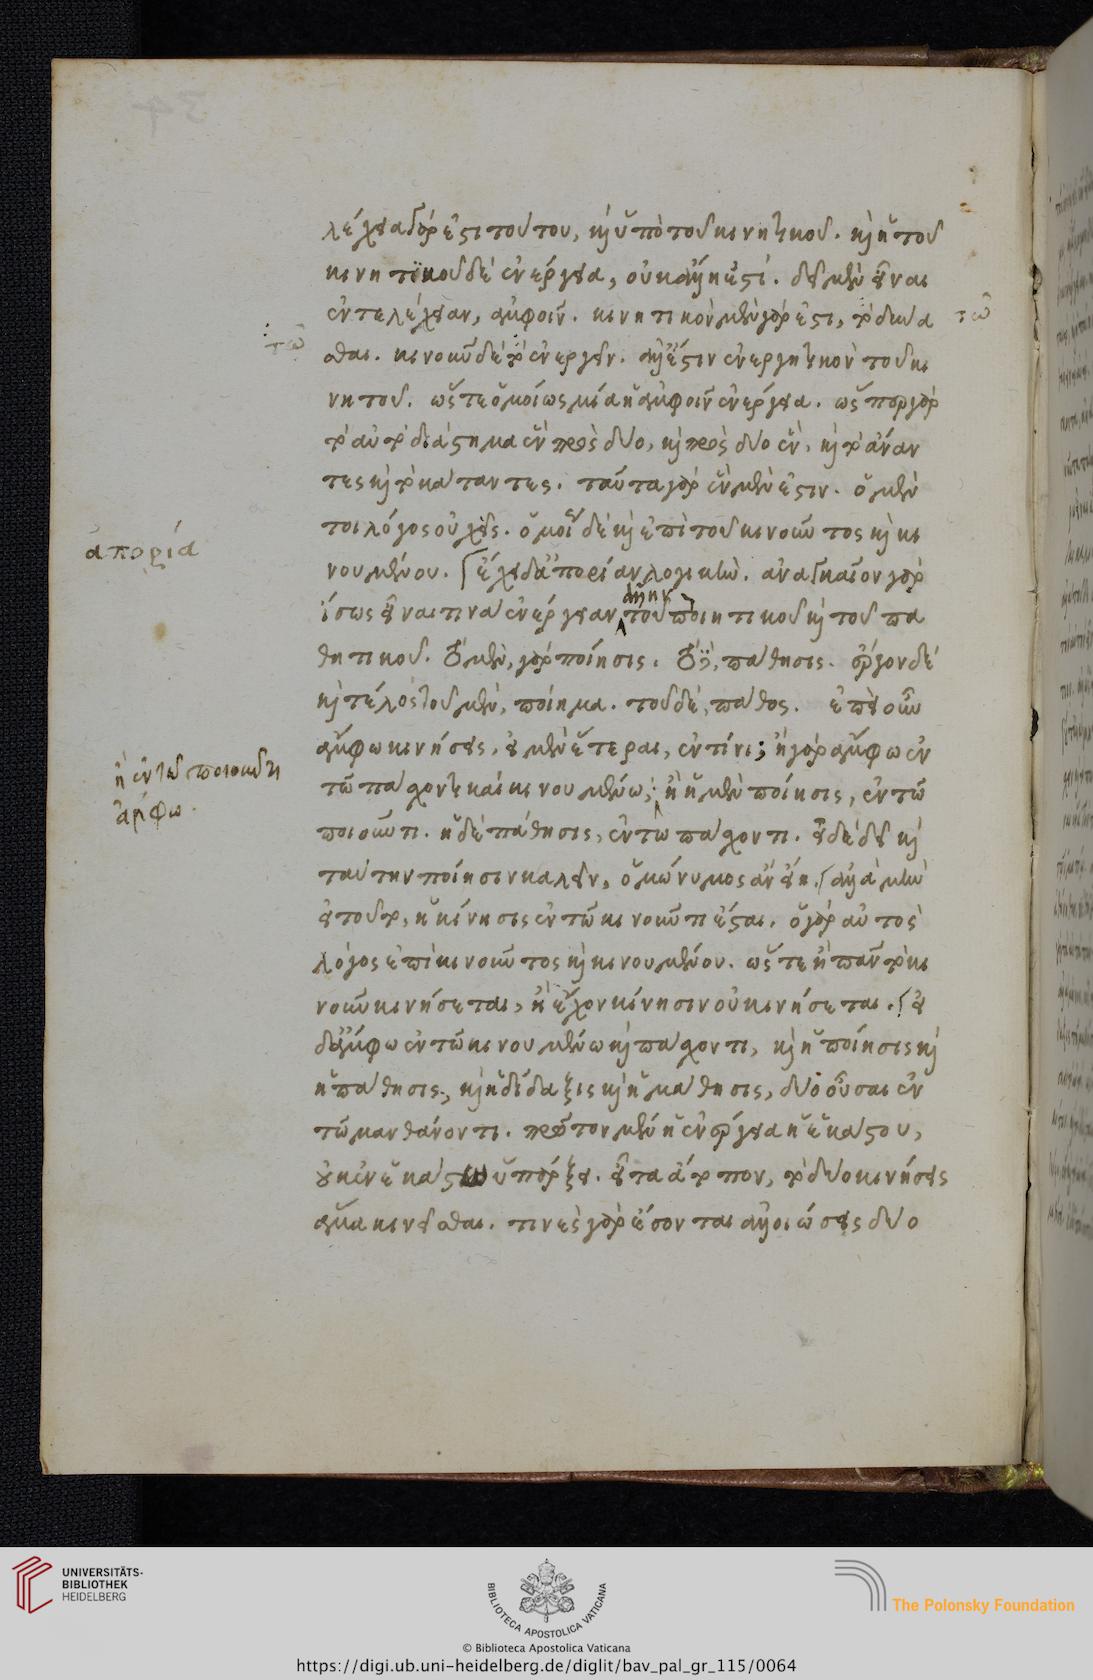 λέχεια γάρ ἐστι τούτου, καὶ ὑπὸ τοῦ κινητικοῦ. καὶ ἡ τοῦ
κινητικοῦ δὲ ἐνέργεια, οὐκ ἄλλη ἐστί. δεῖ μὲν εἶναι
ἐντελέχειαν, ἀμφοῖν. κινητικὸν μὲν γάρ ἐστι, τὸ δύνα
τῶ
τῶ
σθαι. κινοῦν δὲ τὸ ἐνεργεῖν. ἀλλ' ἔστιν ἐνεργητικὸν τοῦ κι
νητοῦ. ὥστε ὁμοίως μία ἡ ἀμφοῖν ἐνέργεια. ὥσπερ γὰρ
τὸ αὐτὸ διάστημα ἓν πρὸς δύο, καὶ πρὸς δύο ἓν, καὶ τὸ ἄναν
τες καὶ τὸ κάταντες. ταῦτα γὰρ ἓν μέν ἐστιν. ὁ μέν
τοι λόγος οὐχ εἷς. ὁμοίως δὲ καὶ ἐπὶ τοῦ κινοῦντος καὶ κι
ἀπορία
νουμένου. ἔχει δ' ἀπορίαν λογικήν. ἀναγκαῖον γὰρ
ἴσως εἶναι τινὰ ἐνέργειαν ἄλλην τοῦ ποιητικοῦ καὶ τοῦ πα
θητικοῦ. τὸ μὲν, γὰρ ποίησις. τὸ δὲ, πάθησις. ἔργον δὲ
καὶ τέλος τοῦ μὲν, ποίημα. τοῦ δὲ, πάθος. ἐπεὶ οὖν
ἄμφω κινήσεις, εἰ μὲν ἕτεραι, ἐν τίνι; ἢ γὰρ ἄμφω ἐν
ἢ ἐν τῶ ποιοῦντι
ἄμφω.
τῶ πάσχοντι καὶ κινουμένω, ἢ ἡ μὲν ποίησις, ἐν τῶ
ποιοῦντι. ἡ δὲ πάθησις, ἐν τῶ πάσχοντι. εἰ δὲ δεῖ καὶ
ταύτην ποίησιν καλεῖν, ὁμώνυμος ἂν εἴη. ἀλλὰ μὴν
εἰ τοῦτο, ἡ κίνησις ἐν τῶ κινοῦντι ἔσται. ὁ γὰρ αὐτὸς
λόγος ἐπὶ κινοῦντος καὶ κινουμένου. ὥστε ἢ πᾶν τὸ κι
νοῦν κινήσεται, ἢ ἔχον κίνησιν οὐ κινήσεται. εἰ
δ' ἄμφω ἐν τῶ κινουμένω καὶ πάσχοντι, καὶ ἡ ποίησις καὶ
ἡ πάθησις, καὶ ἡ δίδαξις καὶ ἡ μάθησις, δύο οὖσαι ἐν
τῶ μανθάνοντι. πρῶτον μὲν ἡ ἐνέργεια ἡ ἑκάστου,
οὐκ ἐν ἑκάστω ὑπάρξει. εἶτα ἄτοπον, τὸ δύο κινήσεις
ἅμα κινεῖσθαι. τίνες γὰρ ἔσονται ἀλλοιώσεις δύο
UNIVERSITÄTS-
BIBLIOTHEK
HEIDELBERG
BIBLIOTECA APOSTOLICA VATICANA
© Biblioteca Apostolica Vaticana
The Polonsky Foundation
https://digi.ub.uni-heidelberg.de/diglit/bav_pal_gr_115/0064